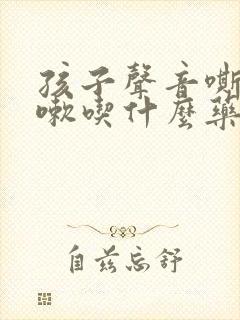 孩子聲音嘶
嗽喫什麼藥
自茲忘舒